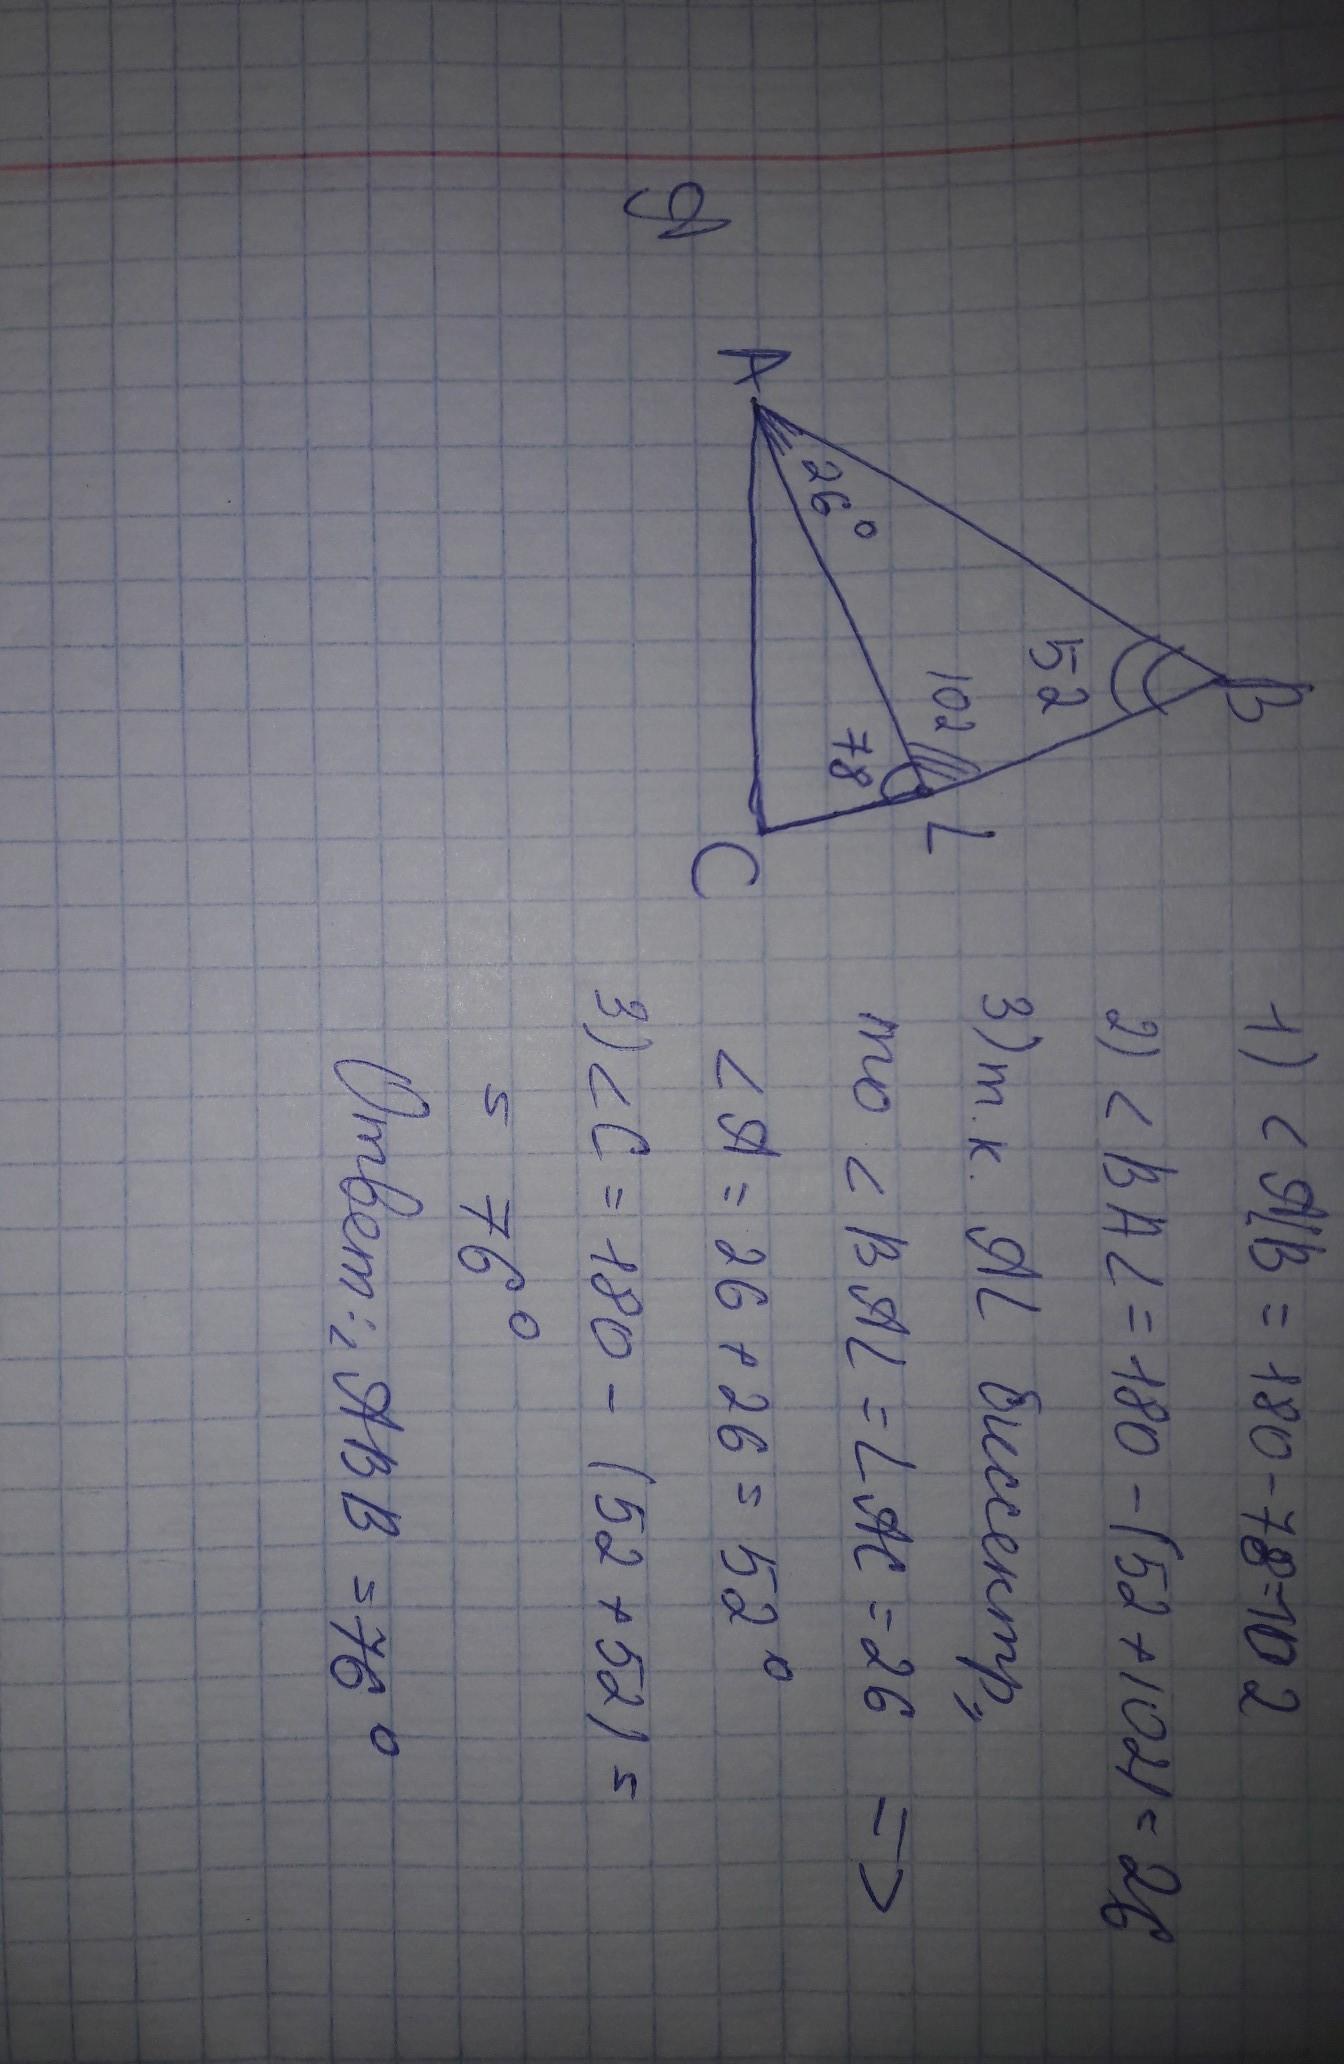 A
26°
B
52
102
78
L
C
1) < ALB = 180 - 78 = 102
2) < BAL = 180 - (52 + 102) = 26
3) т.к. AL биссектр,,
то < BAL = LAC = 26 =>
< A = 26 + 26 = 52°
3) < C = 180 - (52 + 52) =
= 76°
Ответ: < ABB = 76°